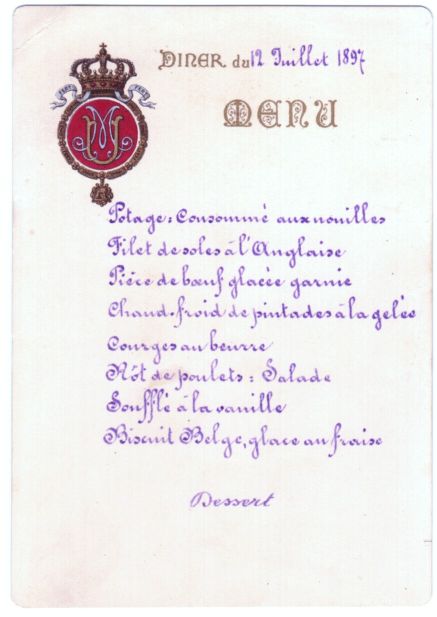 DINER du 12 Juillet 1897
MENU
Potage: Consommé aux nouilles
Filet de soles à l'Anglaise
Pièce de bœuf glacée garnie
Chaud-froid de pintades à la gelée
Courges au beurre
Rôt de poulets: Salade
Soufflé à la vanille
Biscuit Belge, glace au fraise
Dessert